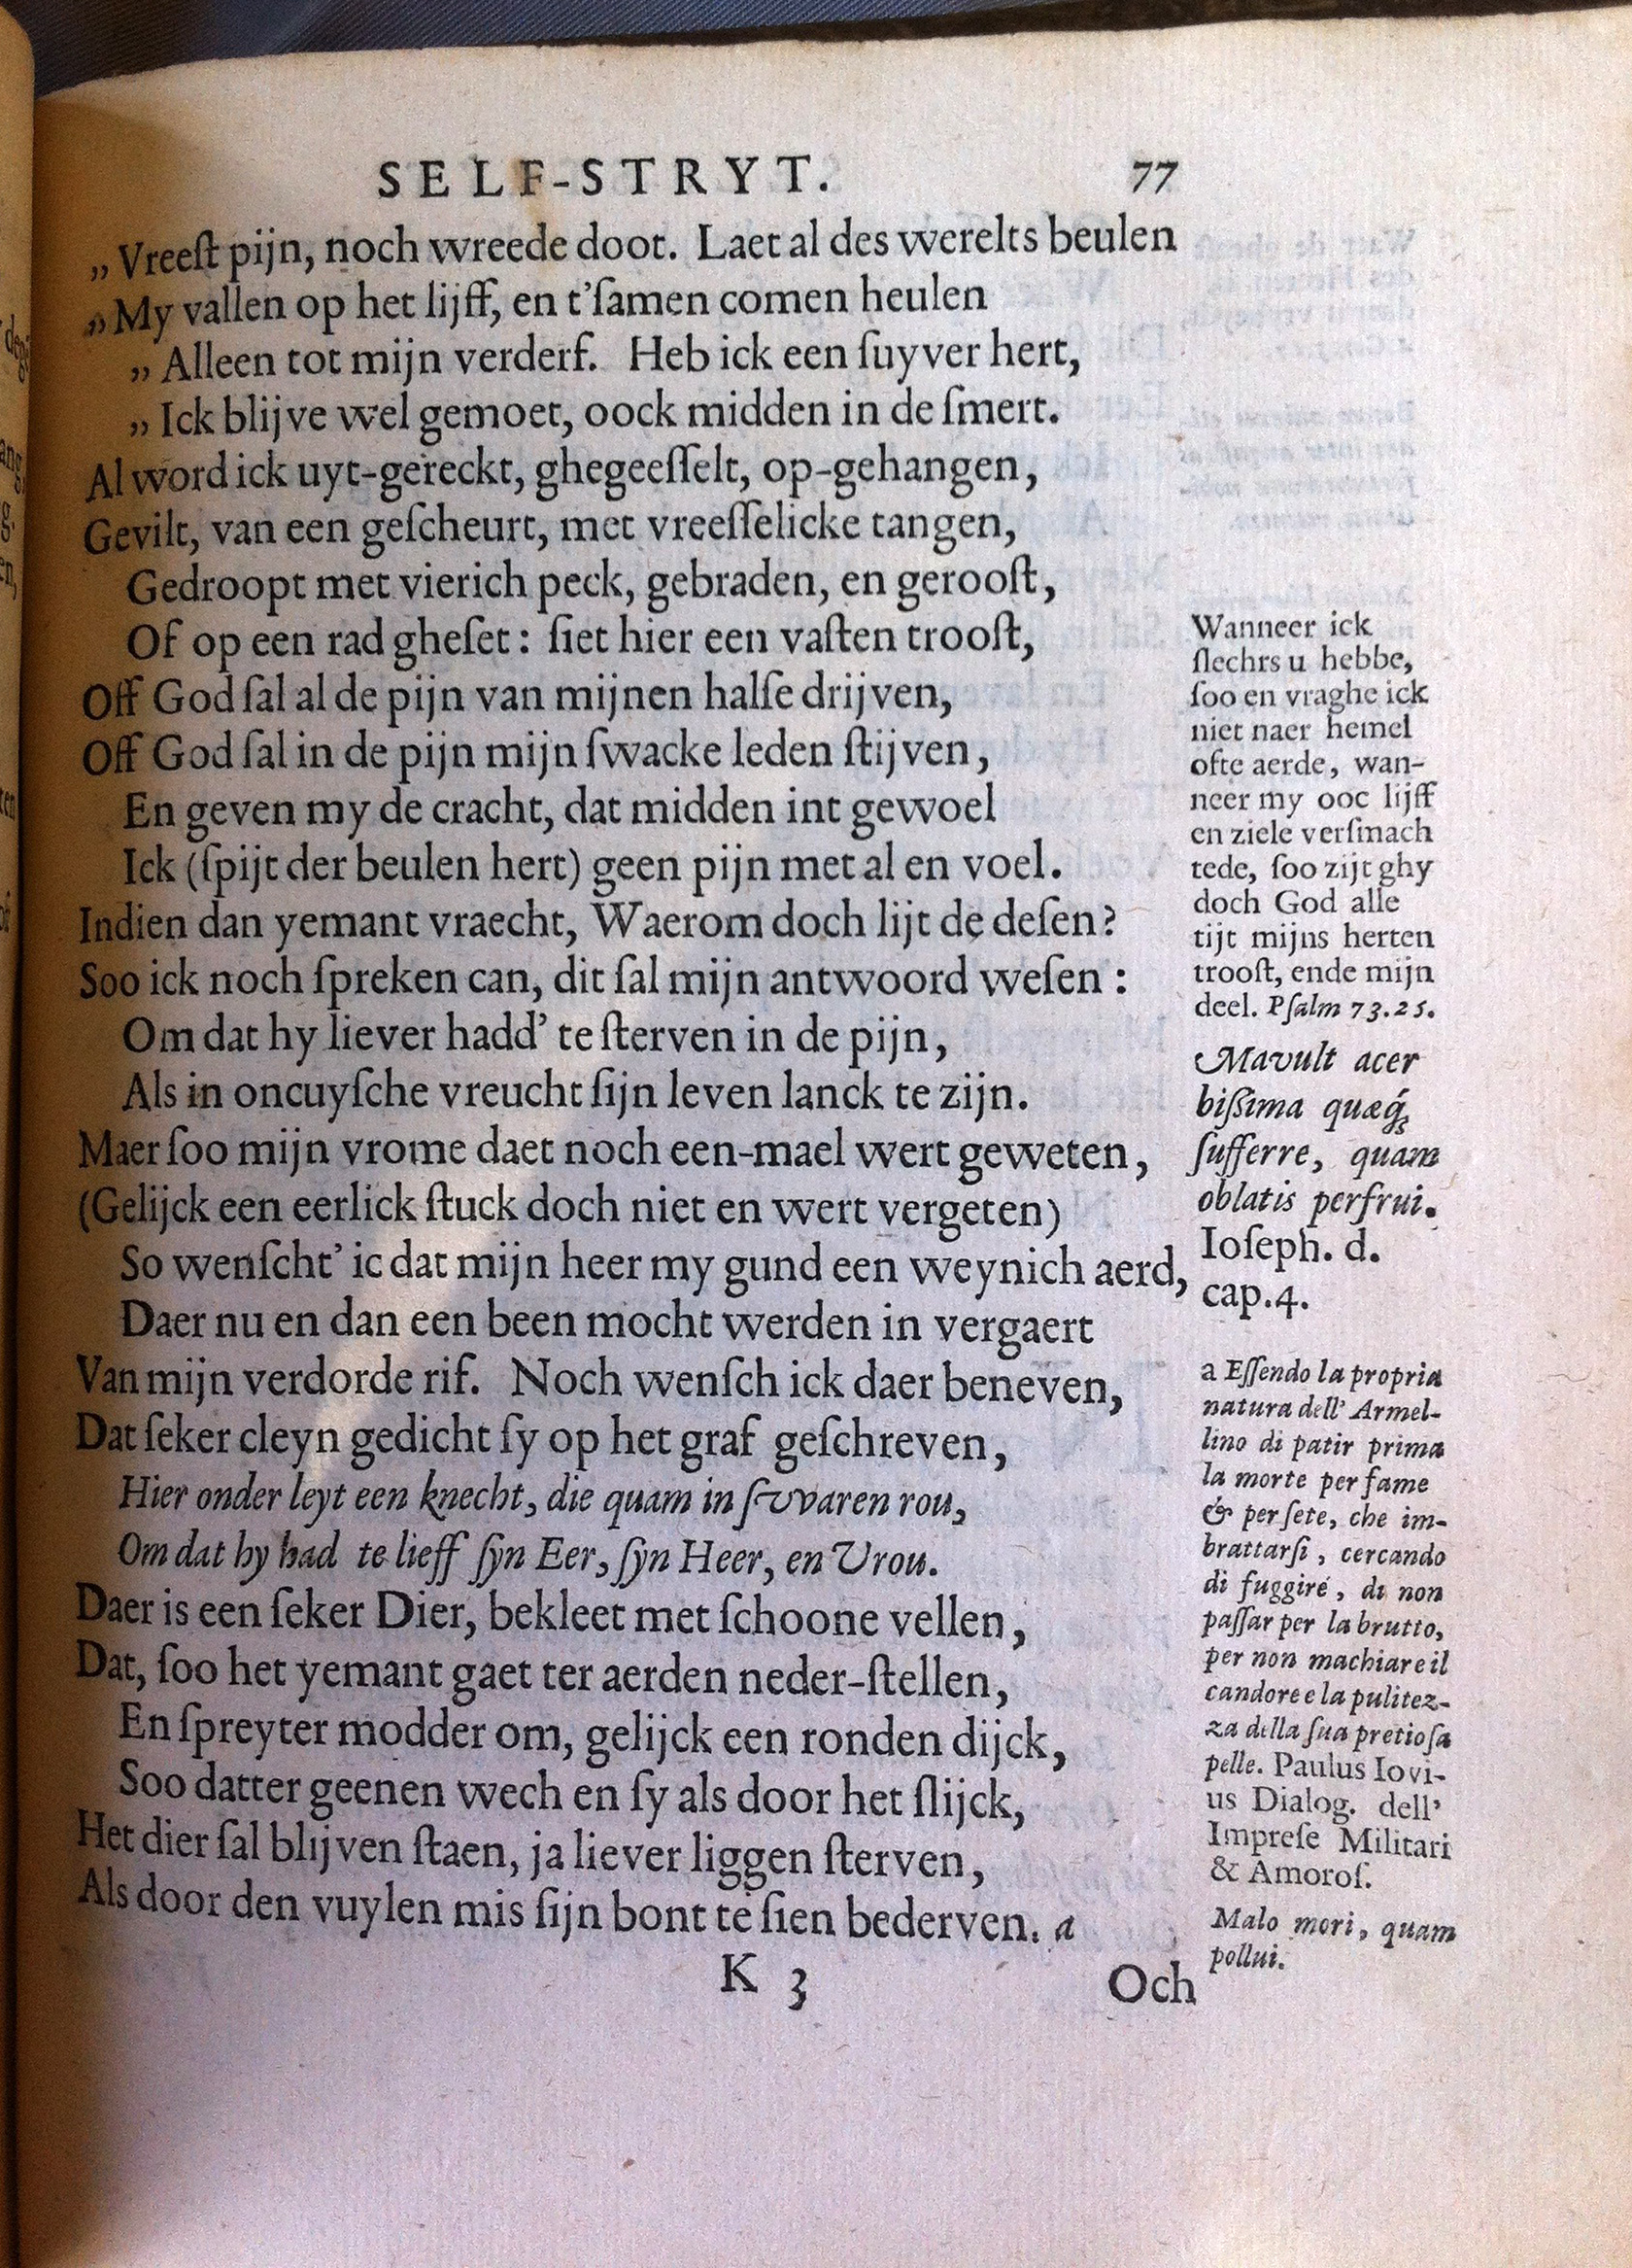 SELF-STRYT. 77
„Vreeſt pijn, noch wreede doot. Laet al des werelts beulen
„My vallen op het lijff, en t'ſamen comen heulen
„Alleen tot mijn verderf. Heb ick een ſuyver hert,
„Ick blijve wel gemoet, oock midden in de ſmert.
Al word ick uyt-gereckt, ghegeeſſelt, op-gehangen,
Gevilt, van een geſcheurt, met vreeſſelicke tangen,
Gedroopt met vierich peck, gebraden, en gerooſt,
Of op een rad gheſet: ſiet hier een vaſten trooſt,
Off God ſal al de pijn van mijnen halſe drijven,
Off God ſal in de pijn mijn ſwacke leden ſtijven,
En geven my de cracht, dat midden int gewoel
Ick (ſpijt der beulen hert) geen pijn met al en voel.
Indien dan yemant vraecht, Waerom doch lijt de deſen?
Soo ick noch ſpreken can, dit ſal mijn antwoord weſen:
Om dat hy liever hadd' te ſterven in de pijn,
Als in oncuyſche vreucht ſijn leven lanck te zijn.
Maer ſoo mijn vrome daet noch een-mael wert geweten,
(Gelijck een eerlick ſtuck doch niet en wert vergeten)
So wenſcht' ic dat mijn heer my gund een weynich aerd,
Daer nu en dan een been mocht werden in vergaert
Van mijn verdorde rif. Noch wenſch ick daer beneven,
Dat ſeker cleyn gedicht ſy op het graf geſchreven,
Hier onder leyt een knecht, die quam in ſvvaren rou,
Om dat hy had te lieff ſyn Eer, ſyn Heer, en Vrou.
Daer is een ſeker Dier, bekleet met ſchoone vellen,
Dat, ſoo het yemant gaet ter aerden neder-ſtellen,
En ſpreyter modder om, gelijck een ronden dijck,
Soo datter geenen wech en ſy als door het ſlijck,
Het dier ſal blijven ſtaen, ja liever liggen ſterven,
Als door den vuylen mis ſijn bont te ſien bederven. a
K 3
Och
Wanneer ick
ſlechrs u hebbe,
ſoo en vraghe ick
niet naer hemel
ofte aerde, wan-
neer my ooc lijff
en ziele verſmach
tede, ſoo zijt ghy
doch God alle
tijt mijns herten
trooſt, ende mijn
deel. Pſalm 73.25.
Mavult acer
biſſima quæq́;
ſufferre, quam
oblatis perfrui.
Ioſeph. d.
cap.4.
a Eſſendo la propria
natura dell' Armel-
lino di patir prima
la morte per fame
& per ſete, che im-
brattarſi, cercando
di fuggire, di non
paſſar per la brutto,
per non machiare il
candore e la pulitez-
za della ſua pretioſa
pelle. Paulus Iovi-
us Dialog. dell'
Impreſe Militari
& Amoroſ.
Malo mori, quam
pollui.